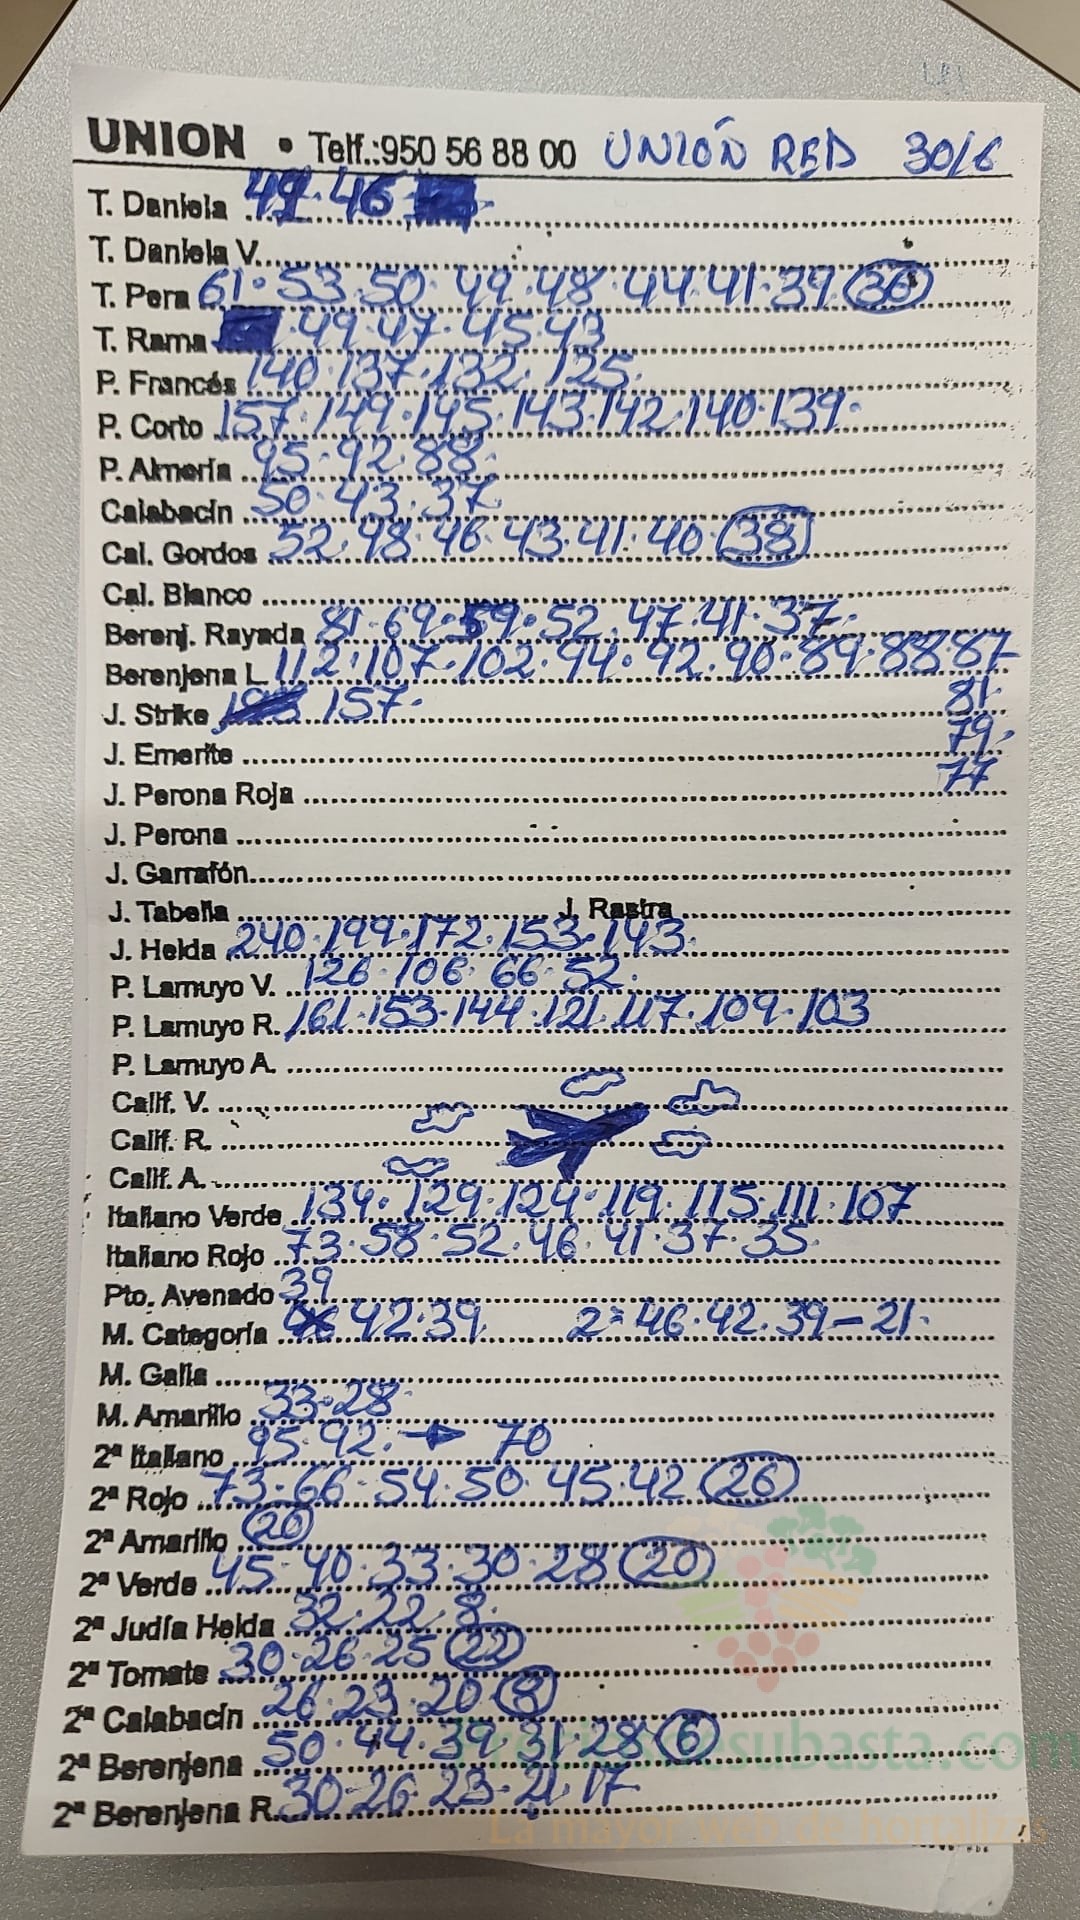 UNION • Telf.:950 56 88 00 UNIÓN RED 30/6
T. Daniela 49·46
T. Daniela V.
T. Pera 61·53·50·49·48·44·41·39 (36)
T. Rama 49·47·45·43
P. Francés 140·137·132·125·
P. Corto 157·149·145·143·142·140·139·
P. Almería 95·92·88·
Calabacín 50·43·37
Cal. Gordos 52·48·46·43·41·40 (38)
Cal. Blanco
Berenj. Rayada 81·69·59·52·47·41·37·
Berenjena L. 112·107·102·94·92·90·89·88·87
J. Strike 157· 81·
J. Emerite 79·
J. Perona Roja 77
J. Perona
J. Garrafón
J. Tabella J. Rastra
J. Helda 240·199·172·153·143·
P. Lamuyo V. 126·106·66·52·
P. Lamuyo R. 161·153·144·121·117·109·103
P. Lamuyo A.
Calif. V.
Calif. R.
Calif. A.
Italiano Verde 134·129·124·119·115·111·107
Italiano Rojo 73·58·52·46·41·37·35·
Pto. Avenado 39
M. Categoría 42·39 2ª 46·42·39–21·
M. Galia
M. Amarillo 33·28·
2ª Italiano 95·92·→ 70
2ª Rojo 73·66·54·50·45·42 (26)
2ª Amarillo (20)
2ª Verde 45·40·33·30·28 (20)
2ª Judía Helda 32·22·8·
2ª Tomate 30·26·25 (22)
2ª Calabacín 26·23·20 (8)
2ª Berenjena 50·44·39·31·28 (6)
2ª Berenjena R. 30·26·23·21·17
Preciosdesubasta.com
La mayor web de hortalizas